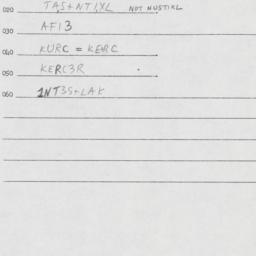 020 TAS+NTIXL NOT NUSTIXL
030 AFI3
040 KURC = KERC
050 KERC3R
060 1NT3S+LAK